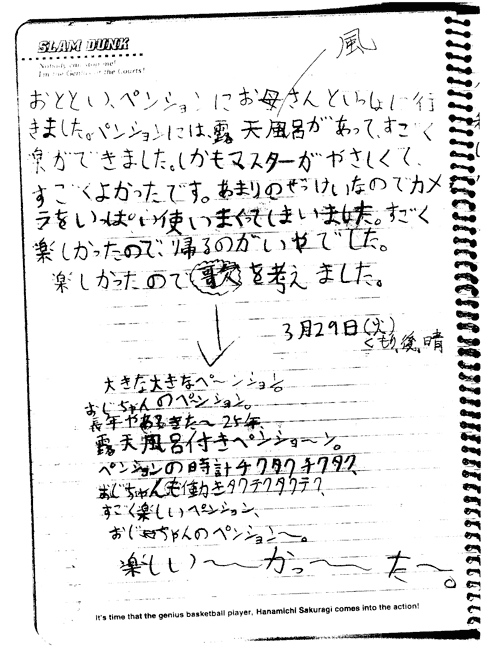 SLAM DUNK
Nobody can stop me!
I'm the Genius of the Courts!
風
おととい、ペンションにお母さんといっしょに行
きました。ペンションには、露天風呂があって、すごく
楽ができました。しかもマスターがやさしくて、
すごくよかったです。あまりのぜっけいなのでカメ
ラをいっぱい使いまくってしまいました。すごく
楽しかったので、帰るのがいやでした。
楽しかったので歌を考えました。
3月29日(火)
くもり後晴
大きな大きなペ〜ンション。
おじちゃんのペンション。
長年やあってきた〜25年
露天風呂付きペンショ〜ン。
ペンションの時計チクタクチクタク、
おじちゃんも動きタクチクタクテク、
すごく楽しいペンション、
おじちゃんのペンション〜。
楽しい〜〜かっ〜〜た〜。
It's time that the genius basketball player, Hanamichi Sakuragi comes into the action!